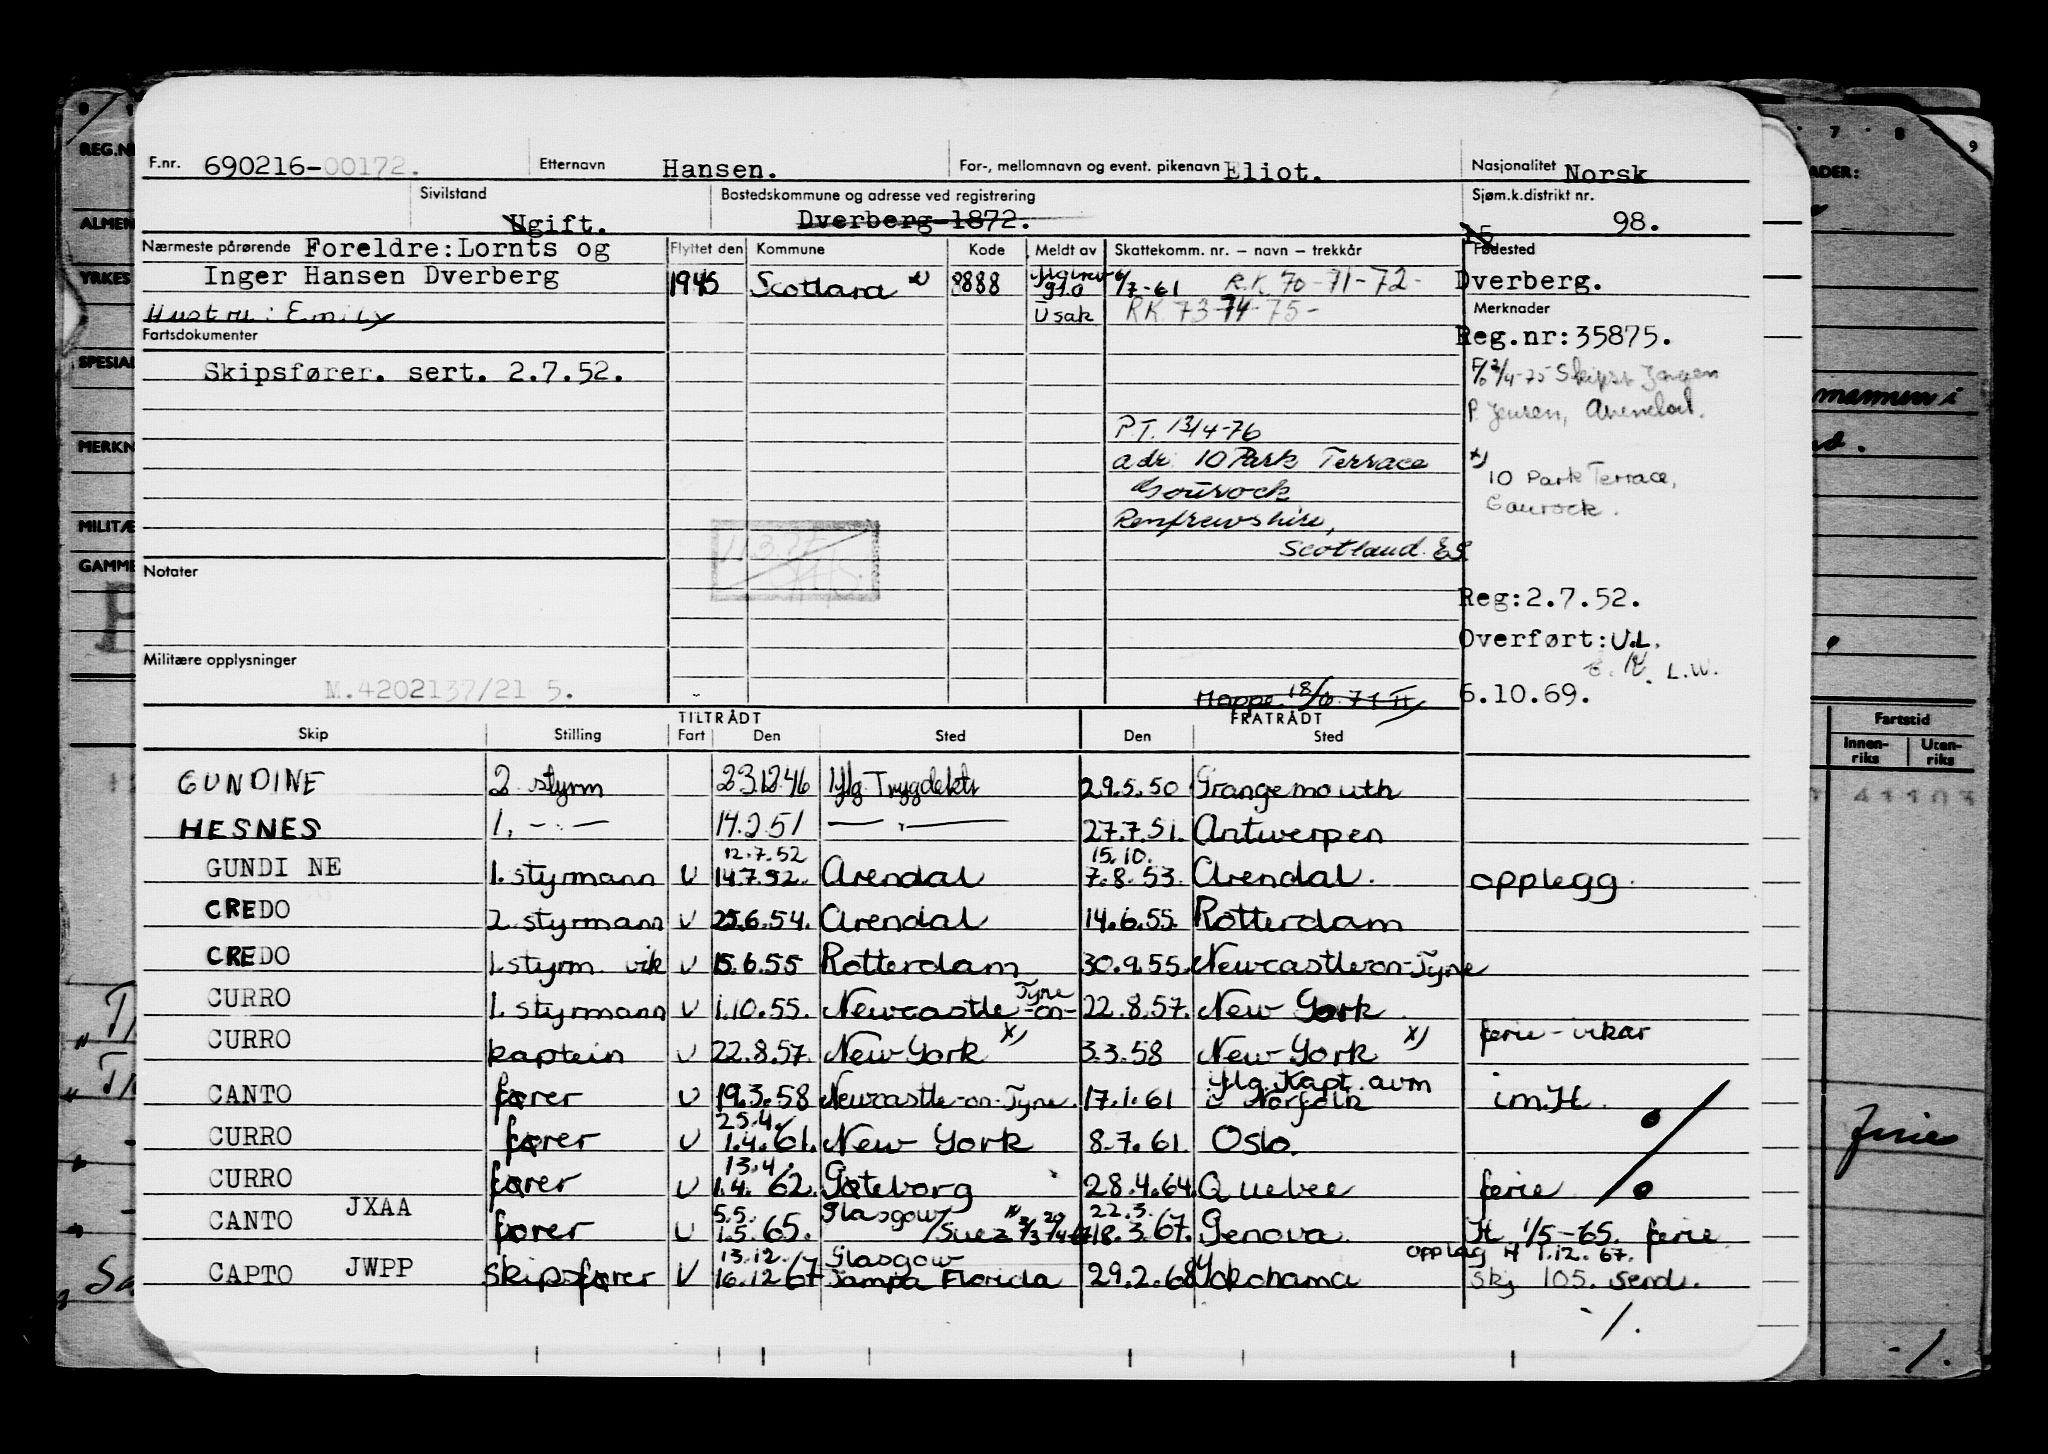 F.nr. 690216-00172. Etternavn Hansen. For-, mellomnavn og event. pikenavn Eliot. Nasjonalitet Norsk
Sivilstand Ugift. Bostedskommune og adresse ved registrering Dverberg-1872. Sjøm.k.distrikt nr. 15 98.
Nærmeste pårørende Foreldre: Lornts og
Inger Hansen Dverberg
Hustru: Emily
Flyttet den Kommune Kode Meldt av Skattekomm. nr. – navn – trekkår
1945 Scotland x) 8888 6/7-61 R.K. 70-71-72-
Usak RK. 73-74-75-
Fødested
Dverberg.
Merknader
Reg.nr: 35875.
2/4-75 Skipsr Jørgen
P. Jensen, Arendal.
x)
10 Park Terrace,
Gourock.
Fartsdokumenter
Skipsfører. sert. 2.7.52.
P.T. 13/4-76
adr. 10 Park Terrace
Gourock
Renfrewshire,
Scotland. ES.
Notater
Reg: 2.7.52.
Overført: U.L.
L.W.
6.10.69.
Militære opplysninger
M.4202137/21 5.
Hoppe
TILTRÅDT FRATRÅDT
Skip Stilling Fart Den Sted Den Sted
GUNDINE 2. styrm 23.12.46 Iflg. Trygdektr 29.5.50 Grangemouth
HESNES 1. -"- 14.2.51 -"- 27.7.51. Antwerpen
12.7.52 15.10.
GUNDI NE 1. styrmann U 14.7.52. Arendal 7.8.53. Arendal. opplegg.
CREDO 2. styrmann U 25.6.54. Arendal 14.6.55. Rotterdam
CREDO 1. styrm. vik U 15.6.55 Rotterdam 30.9.55. Newcastle-on-Tyne
CURRO 1. styrmann U 1.10.55. Newcastle-on-Tyne 22.8.57. New York
CURRO kaptein U 22.8.57. New York x) 3.3.58 New York x) ferie-vikar
CANTO fører U 19.3.58 Newcastle-on-Tyne. 17.1.61 iflg. Kapt. avm i Norfolk im.H.
25.4.
CURRO fører U 1.4.61. New York 8.7.61. Oslo.
13.4.
CURRO fører U 1.4.62. Gøteborg 28.4.64. Quebec ferie
5.5. Glasgow 22.3.
CANTO JXAA fører U 1.5.65. /Suez 18.3.67. Genova. H 1/5-65. ferie
13.12. Glasgow opplag H 1.12.67.
CAPTO JWPP Skipsfører U 16.12.67 Tampa Florida 29.2.68 Yokohama Skj 105. send.
-/.
REG.N
ALMEN
YRKES
SPESIA
MERKN
MILITÆ
GAMME
7 8 9
ADER:
mannen i
Fartstid
Innen-riks Uten-riks
ferie
-/.